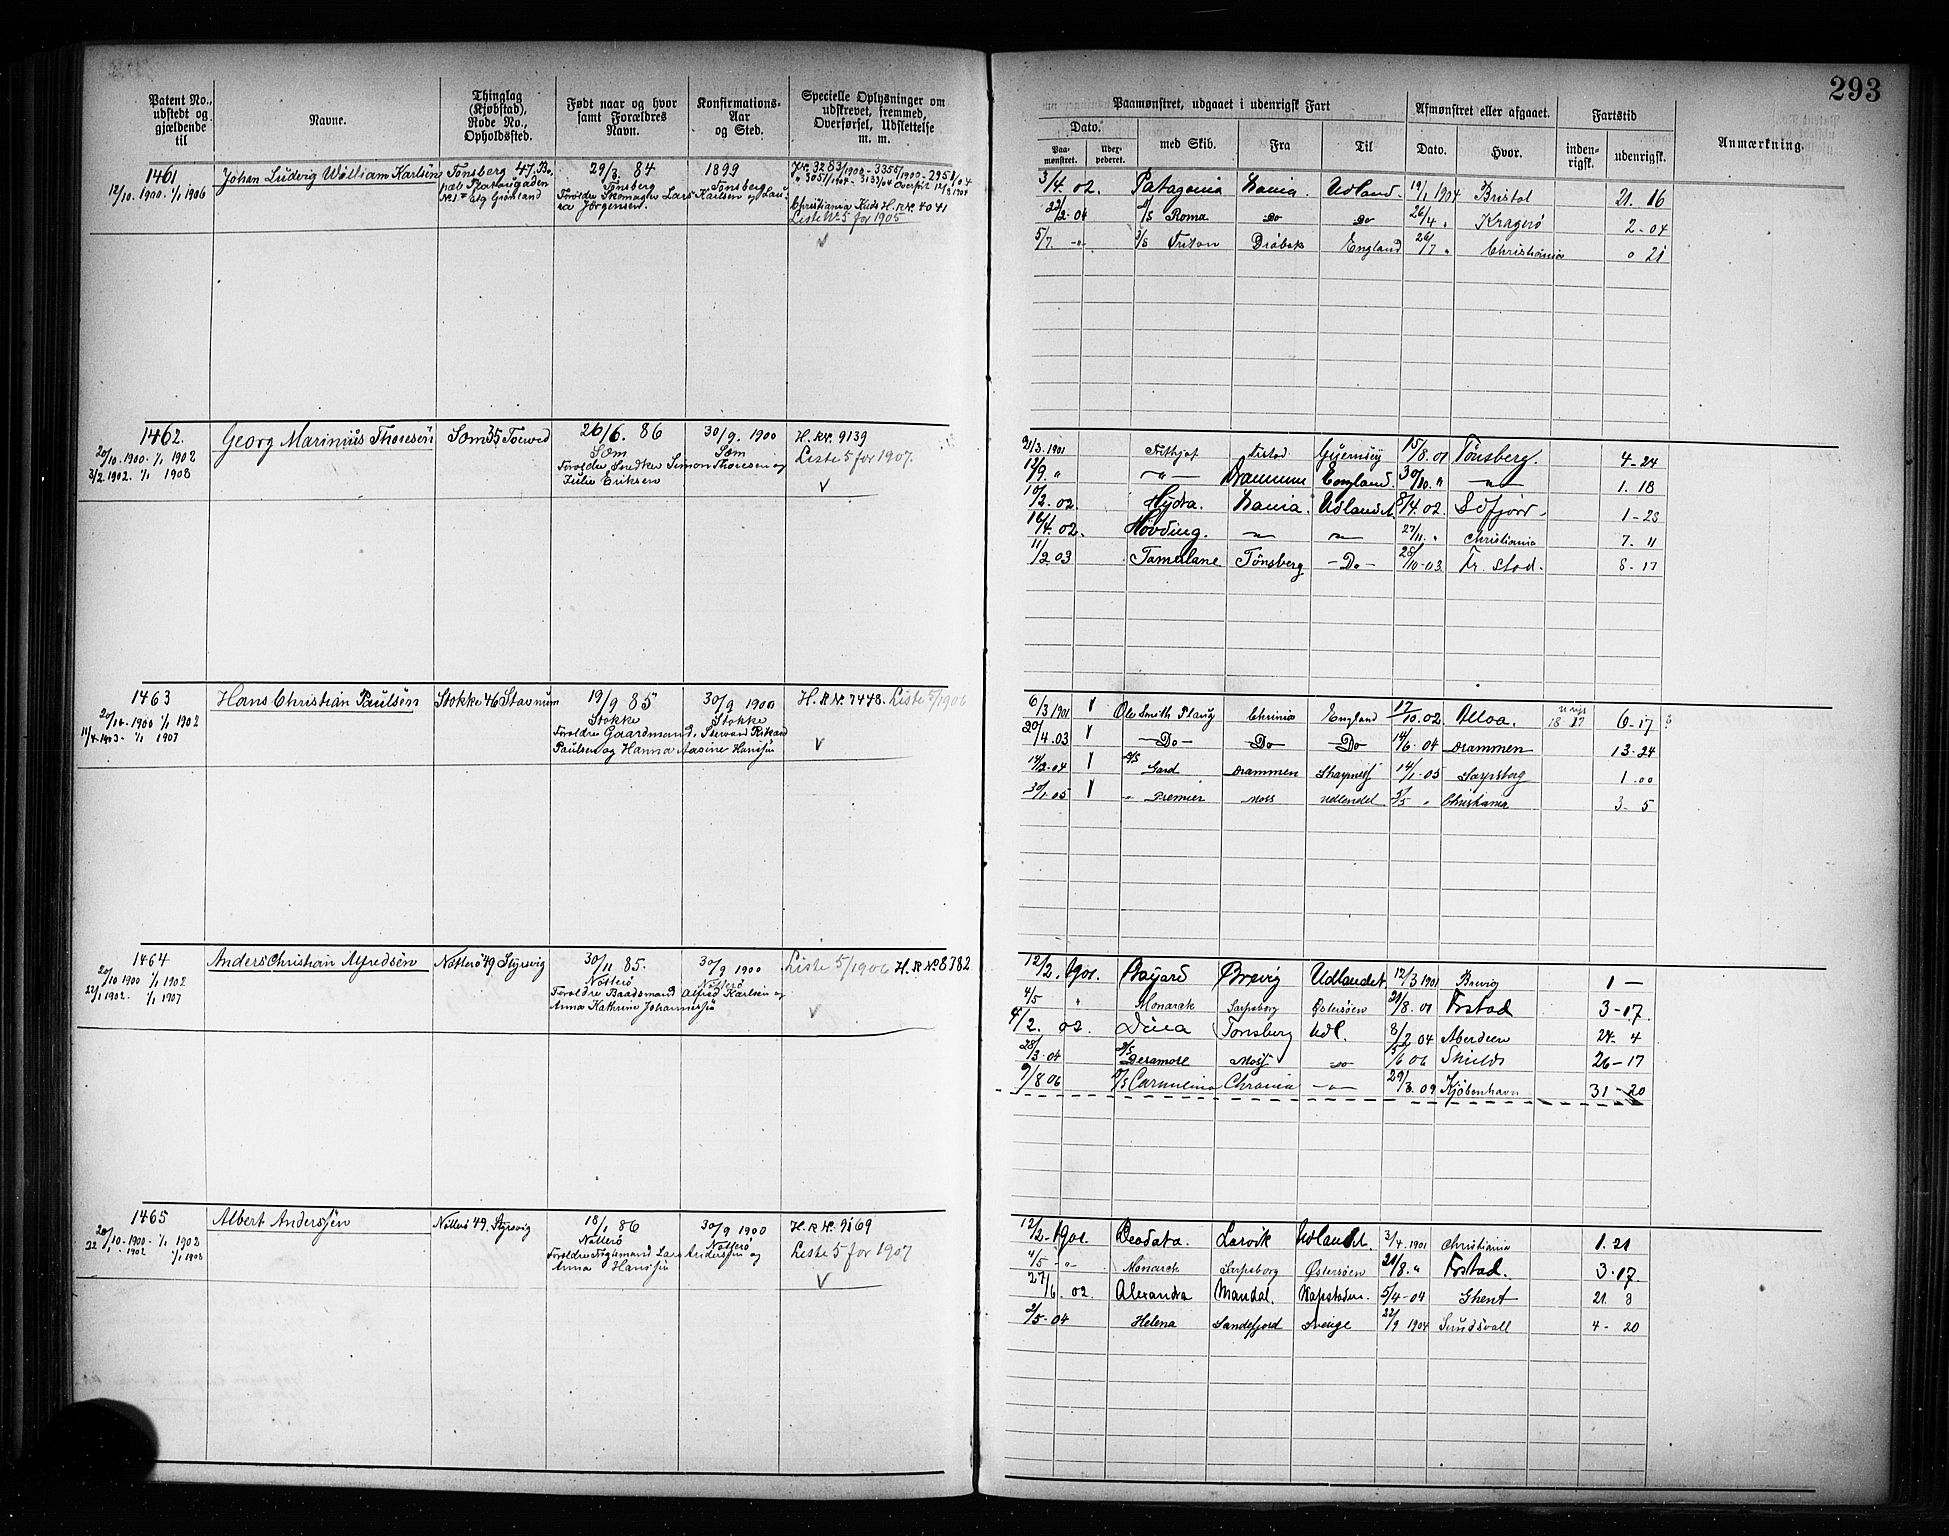 293
Patent No., udstedt og gjældende til
Navne.
Thinglag (Kjøbstad), Rode No., Opholdssted.
Født naar og hvor samt Forældres Navn.
Konfirmations-Aar og Sted.
Specielle Oplysninger om udskrevet, fremmed, Overførsel, Udslettelse m. m.
Paamønstret, udgaaet i udenrigsk Fart
Afmønstret eller afgaaet.
Fartstid
Anmærkning.
Dato.
Paa-mønstret.
med Skib.
Fra
Til
Dato.
Hvor.
inden-rigsk.
udenrigsk.
1461
12/10. 1900. 1/1 1906
Johan Ludvig William Karlsen
Tønsberg 47.
No 1 Grønland
29/3. 84
Tønsberg
Forældre Skomager Lars Karlsen og
Jørgensen.
1899
Tønsberg
Christiania Kreds H. R. No. 4041
Liste No 5 for 1905
3/4. 02. Patagonia Udland. 19/1 1904 Bristol 21. 16
22/2. 04 S/S Roma Do Do 26/4 " Kragerø 2-04
5/7. -"- S/S Triton Drøbak England 26/7 " Christiania 0 21
1462.
20/10. 1900. 1/1 1902
3/2 1902. 1/1 1908
Georg Marinius Thoresen
Sæm 35
26/6. 86
Sæm
Forældre Simon Thoresen og
Julie Eriksen
30/9. 1900
Sæm
H. R. No. 9139
Liste 5 for 1907.
21/3. 1901 Fithjof 15/8. 01 Tønsberg. 4-24
12/9. " -"- Drammen England. 30/10. " -"- 1. 18
10/2. 02. Hydra. Udlandet. 8/4. 02. 1-28
16/4. 02. Høvding. -"- -"- 27/11. " Christiania 7. 11
11/2 03 Tamerlane Tønsberg -Do- 28/10-03 Fr. stad. 8-17
1463
20/10. 1900 1/1 1902
11/4 1903. 1/1 1907
Hans Christian Paulsen
Stokke 46 Stavnum
19/9 85
Stokke
Forældre Gaardmand,
Paulsen og Hanna Maxine Hanssen
30/9 1900
Stokke
H. R. No. 7448. Liste 5/1906
6/3 1901 Ole Smith Ploug Chrinia England 17/10. 02 Alloa. 18 17 6-17
20/4. 03 -Do- -Do- -Do- 14/6. 04 Drammen 13-24
14/12-04 S/S Gard Drammen 14/1-05 Sarpsborg 1. 00
30/1. 05 " Premier Moss Udlandet 5/5 " Christiania 3- 5
1464
20/10 1900 1/1 1902
22/1 1902. 1/1 1907
Anders Christian Alfredsen
Nøtterø 49 Styrsvig
30/11 85.
Nøtterø
Forældre Baadsmand Alfred Karlsen og
Anna Kathrine Johannessen
30/9 1900
Nøtterø
Liste 5/1906 H. R. No 8782
12/2. 1901. Bayard Brevig Udlandet 12/3 1901 Brevig 1 —
4/5 " Monarck Sarpsborg Østersøen 21/8. 01 Frstad 3-17.
4/2. 02. Dina Tønsberg Udl. 8/2 04 Aberdeen 24-4
28/3-04 S/S Deramore Moss do 15/6 06 Shields 26-17
9/8 06 S/S Carmelina Chrania -"- 29/3. 09 Kjøbenhavn 31-20
1465
20/10-1900- 1/1 1902
22/1-1902 1/1 1908
Albert Anderssen
Nøtterø 49. Styrsvig
18/1 86
Nøtterø
Forældre Lars Anderssen og
Anna Hanssen
30/9 1900
Nøtterø
H. R. No. 9169
Liste 5 for 1907
12/2. 1901. Deodata. Larvik Udlandet. 3/4. 1901 Christiania 1. 21
4/5 -"- Monarck Sarpsborg Østersøen 21/8. " Frstad. 3.17.
27/6. 02. Alexandra Mandal. Kapstaden. 5/4-04 Ghent 21. 8
2/5-04 Helena Sandefjord Sverige 22/9 1904 Sundsvall 4- 20